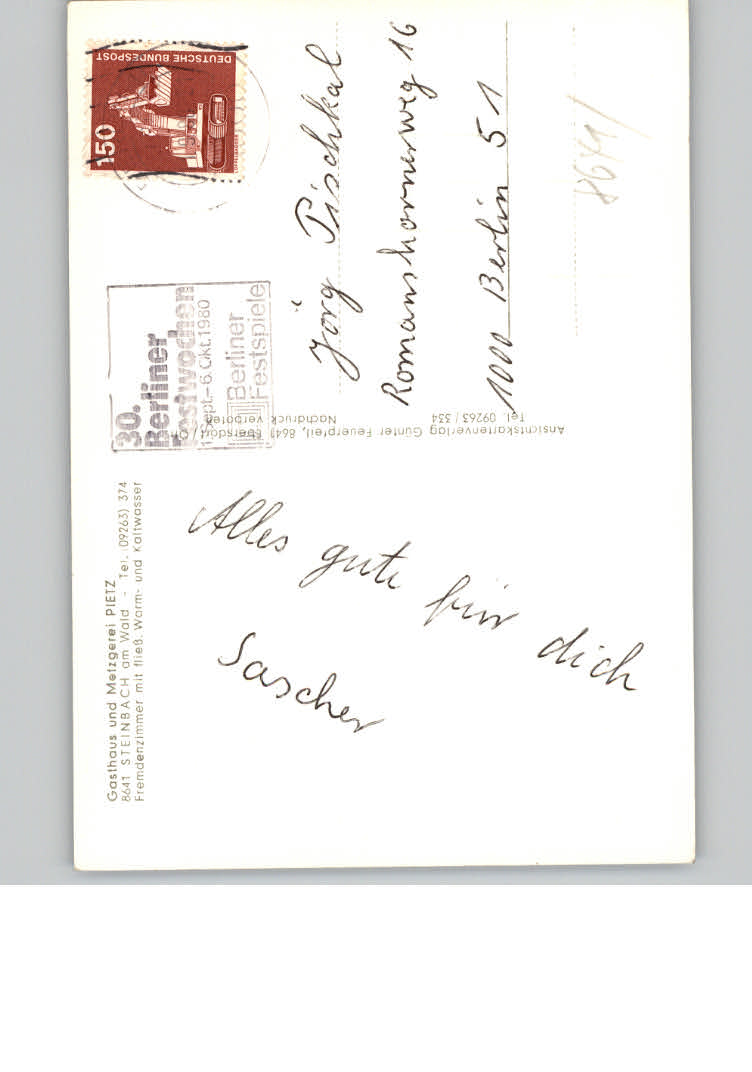 Gasthaus und Metzgerei PIETZ
8641 STEINBACH am Wald - Tel. (09263) 374
Fremdenzimmer mit fließ. Warm- und Kaltwasser
Alles gute für dich
Sascher
30.
Berliner
Festwochen
Sept.-6.Okt.1980
Berliner
Festspiele
DEUTSCHE BUNDESPOST
150
Jörg Pischkal
Romanshornerweg 16
1000 Berlin 51
Ansichtskartenverlag Günter Feuerpfeil, 8641 Ebersdorf
Tel. 09263 / 334
Nachdruck verboten
8641